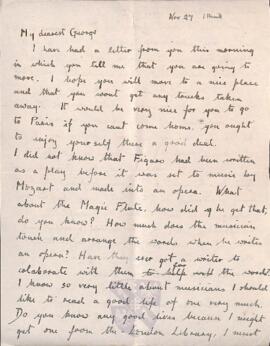 Nov 27
My dearest George
I have had a letter from you this morning
in which you tell me that you are going to
move. I hope you will move to a nice place
and that you wont get any books taken
away. It would be very nice for you to go
to Paris if you cant come home, you ought
to enjoy yourself there a good deal.
I did not know that Figaro had been written
as a play before it was set to music by
Mozart and made into an opera. What
about the Magic Flute, how did he get that,
do you know? How much does the musician
touch and arrange the words when he writes
an opera? Have they ever got a writer to
collaborate with them to the words.
I know so very little about musicians I should
like to read a good life of one very much.
Do you know any good lives because I might
get one from the London Library, I must